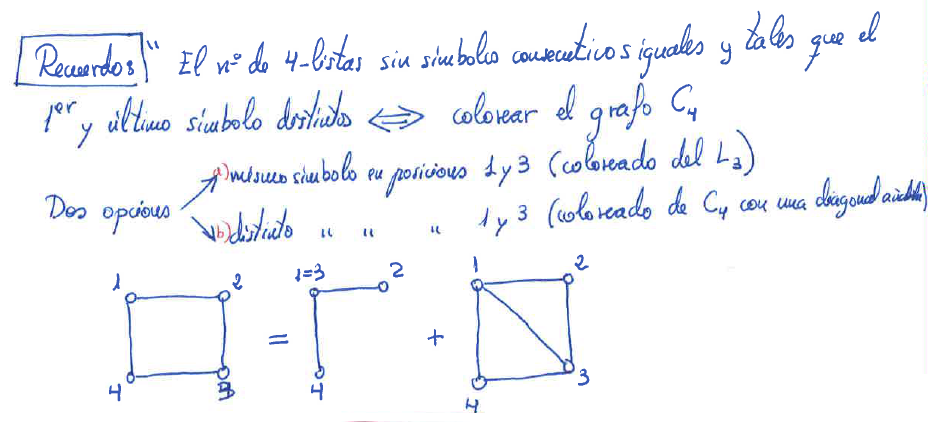 Recuerdos " El nº de 4-listas sin símbolos consecutivos iguales y tales que el
1er y último símbolo distintos ⟺ colorear el grafo C4
a) mismo símbolo en posiciones 1 y 3 (coloreado del L3)
Dos opciones
b) distinto " " " 1 y 3 (coloreado de C4 con una diagonal añadida)
1 2 1=3 2 1 2
= +
4 3 4 4 3